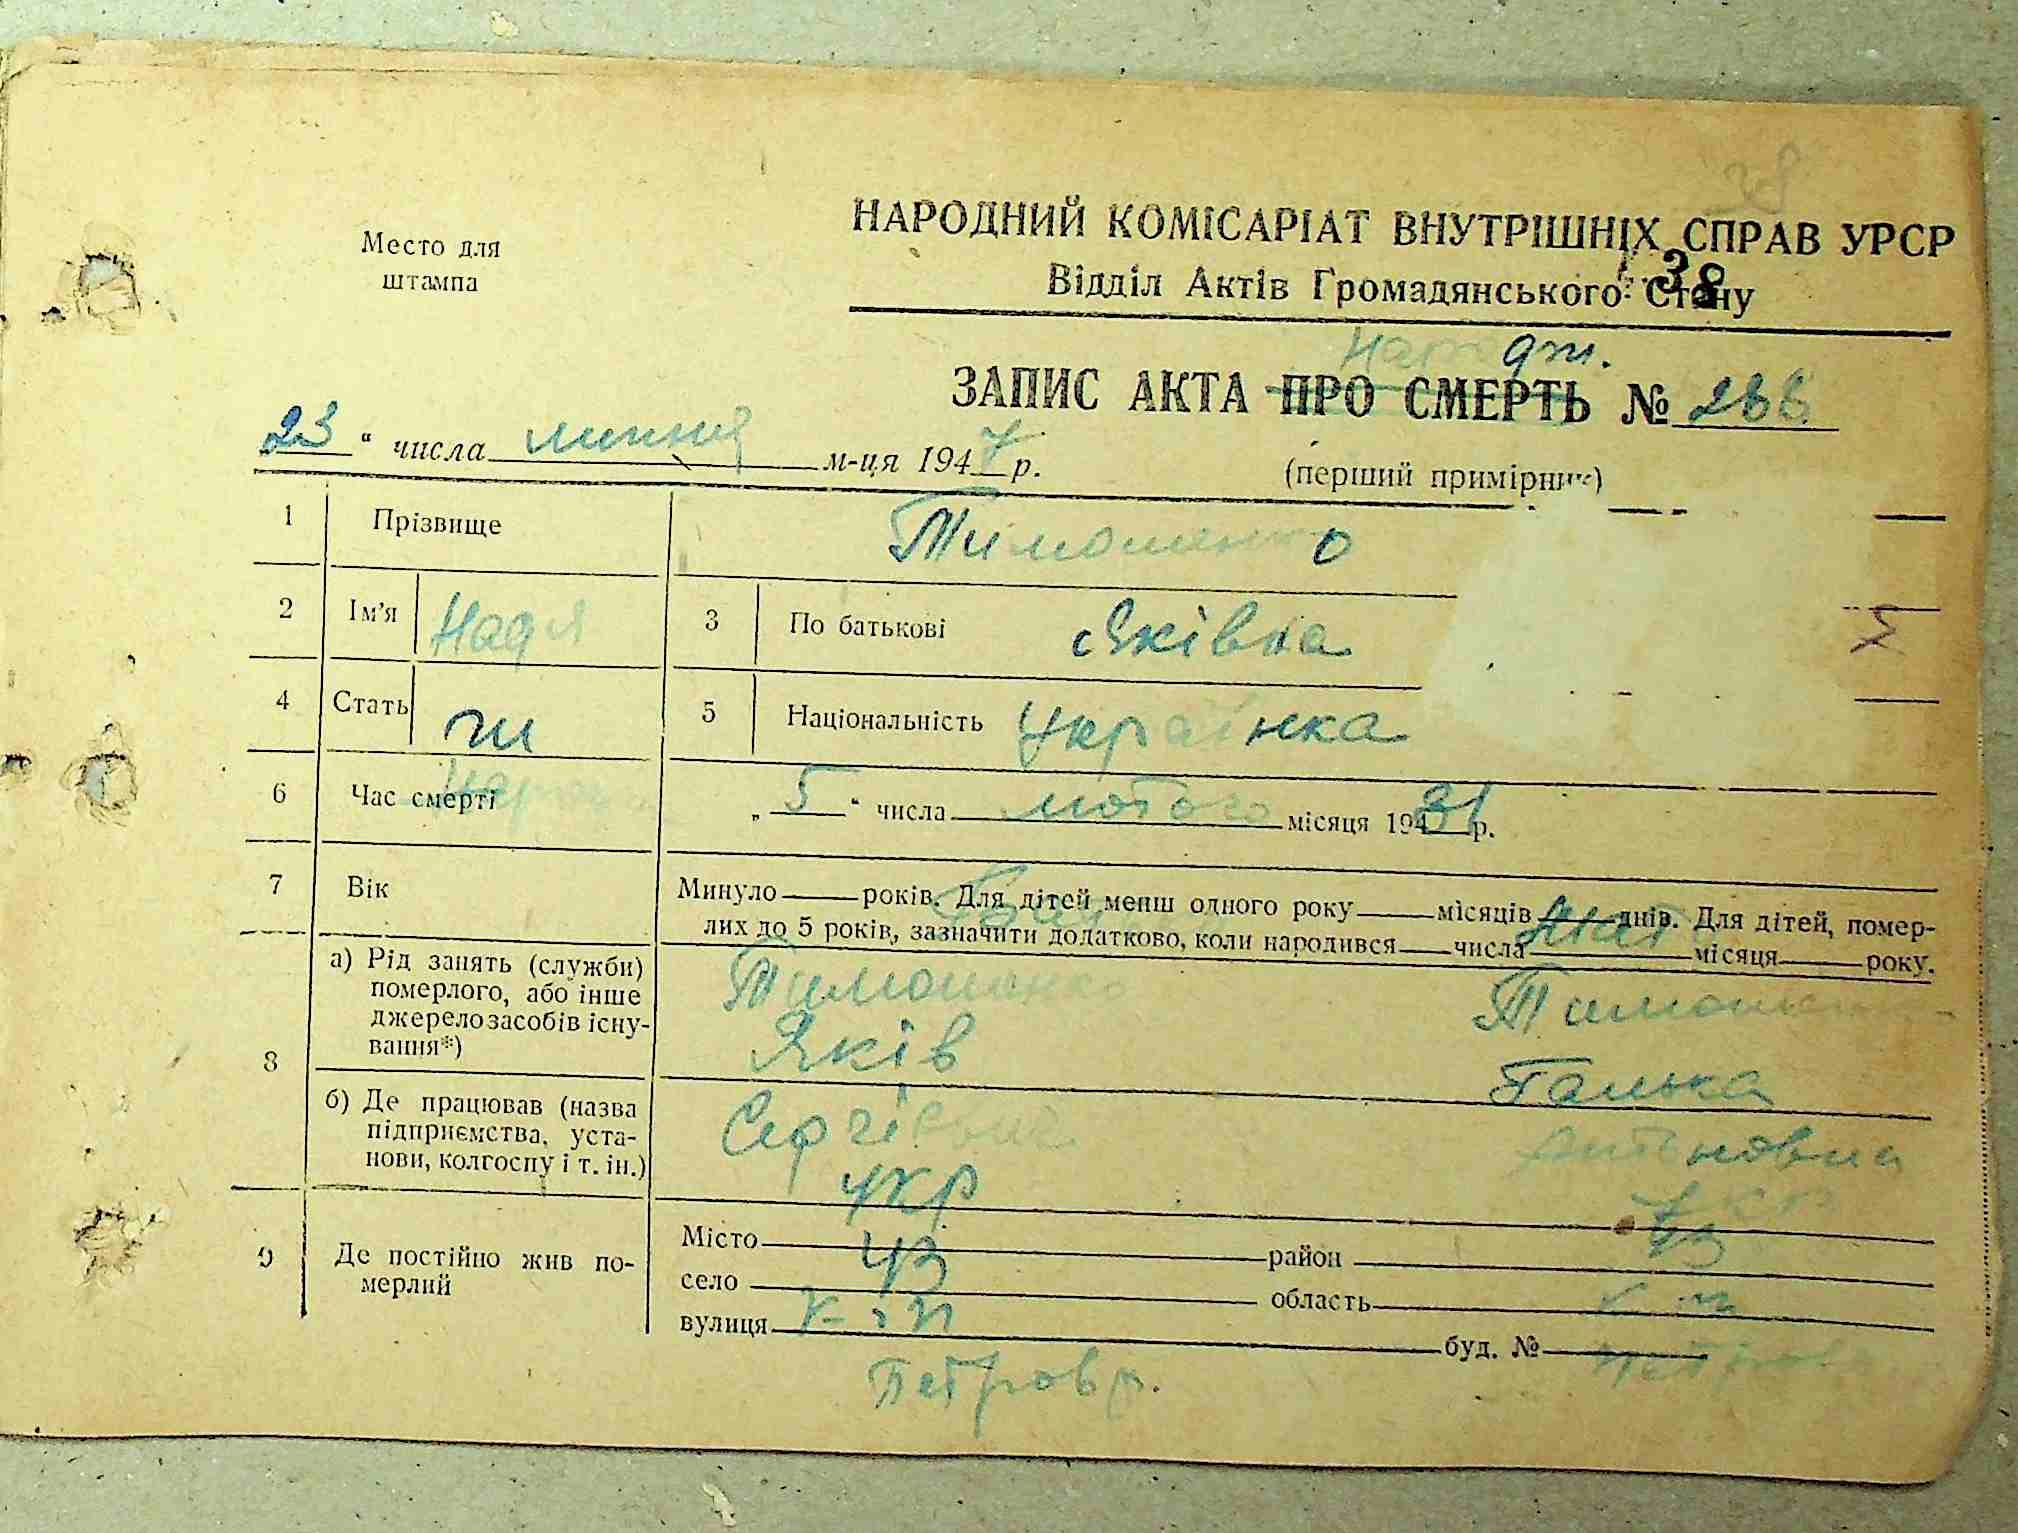 38
Место для
штампа
НАРОДНИЙ КОМІСАРІАТ ВНУТРІШНІХ СПРАВ УРСР
38
Відділ Актів Громадянського Стану
ЗАПИС АКТА ПРО СМЕРТЬ №
23 " числа липня м-ця 1947 р.
(перший примірник)
1 Прізвище Тимошенко
2 Ім'я Надя 3 По батькові Яківна
4 Стать ж 5 Національність українка
6 Час смерті „ 5 " числа лютого місяця 1931 р.
7 Вік Минуло років. Для дітей менш одного року місяців днів. Для дітей, помер-
лих до 5 років, зазначити додатково, коли народився числа місяця року.
8 а) Рід занять (служби)
померлого, або інше
джерело засобів існу-
вання*)
Тимошенко Тимошенко
Яків Галька
б) Де працював (назва
підприємства, уста-
нови, колгоспу і т. ін.)
укр укр
9 Де постійно жив по-
мерлий
Місто район
село область
вулиця буд. №